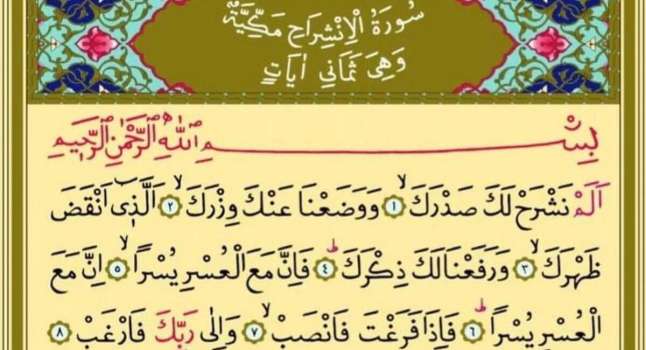 سُورَةُ الْاِنْشِرَاحِ مَكِّيَّةٌ
وَهِىَ ثَمَانِي اٰيَاتٍ
بِسْــــــــــــــــــمِ اللّٰهِ الرَّحْمٰنِ الرَّحٖيمِ
اَلَمْ نَشْرَحْ لَكَ صَدْرَكَۙ ﴿١﴾ وَوَضَعْنَا عَنْكَ وِزْرَكَۙ ﴿٢﴾ اَلَّذٖٓى اَنْقَضَ
ظَهْرَكَۙ ﴿٣﴾ وَرَفَعْنَا لَكَ ذِكْرَكَؕ ﴿٤﴾ فَاِنَّ مَعَ الْعُسْرِ يُسْرًاۙ ﴿٥﴾ اِنَّ مَعَ
الْعُسْرِ يُسْرًاؕ ﴿٦﴾ فَاِذَا فَرَغْتَ فَانْصَبْۙ ﴿٧﴾ وَاِلٰى رَبِّكَ فَارْغَبْ ﴿٨﴾